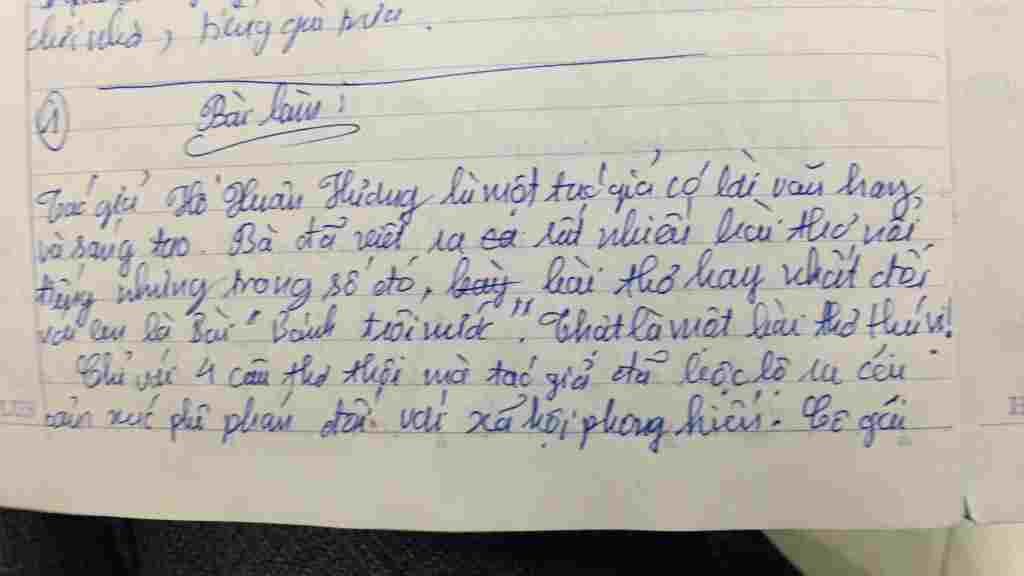 chơi nhà, hàng quà mưa.
1
Bài làm:
Tác giả Hồ Xuân Hương là một tác giả có lời văn hay,
và sáng tạo. Bà đã viết ra có rất nhiều bài thơ nổi
tiếng nhưng trong số đó, bài thơ hay nhất đối
với em là Bài "Bánh trôi nước". Thật là một bài thơ thú vị!
Chỉ với 4 câu thơ thôi mà tác giả đã bộc lộ ra cái
cảm xúc phê phán đối với xã hội phong kiến. Cô gái